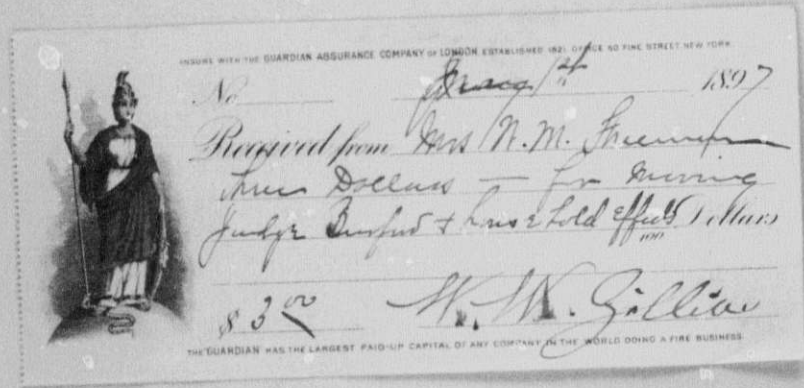 INSURE WITH THE GUARDIAN ASSURANCE COMPANY OF LONDON ESTABLISHED 1821. OFFICE 50 PINE STREET NEW YORK.
No 1897
Received from Mrs W. M. Freeman
three Dollars — for moving
Judge & household effects 100 Dollars
$ 3 00 W. W.
THE GUARDIAN HAS THE LARGEST PAID-UP CAPITAL OF ANY COMPANY IN THE WORLD DOING A FIRE BUSINESS.